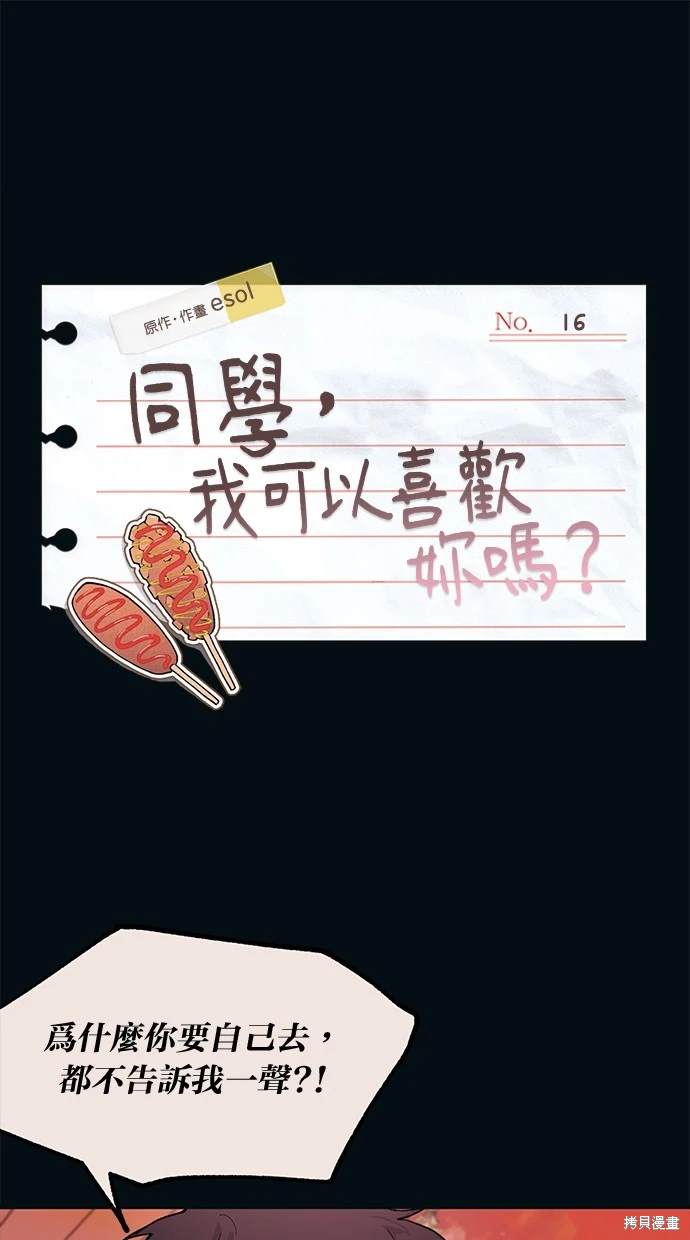 原作·作畫 esol
No. 16
同學，
我可以喜歡
妳嗎？
爲什麼你要自己去，
都不告訴我一聲?!
拷貝漫畫